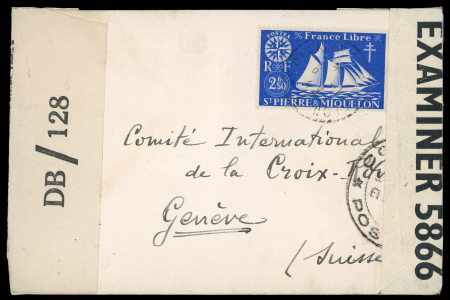 DB/128
POSTES
France Libre
RF
2f50
ST PIERRE & MIQUELON
EXAMINER 5866
Comité International
de la Croix-
Genève
(Suisse
POS